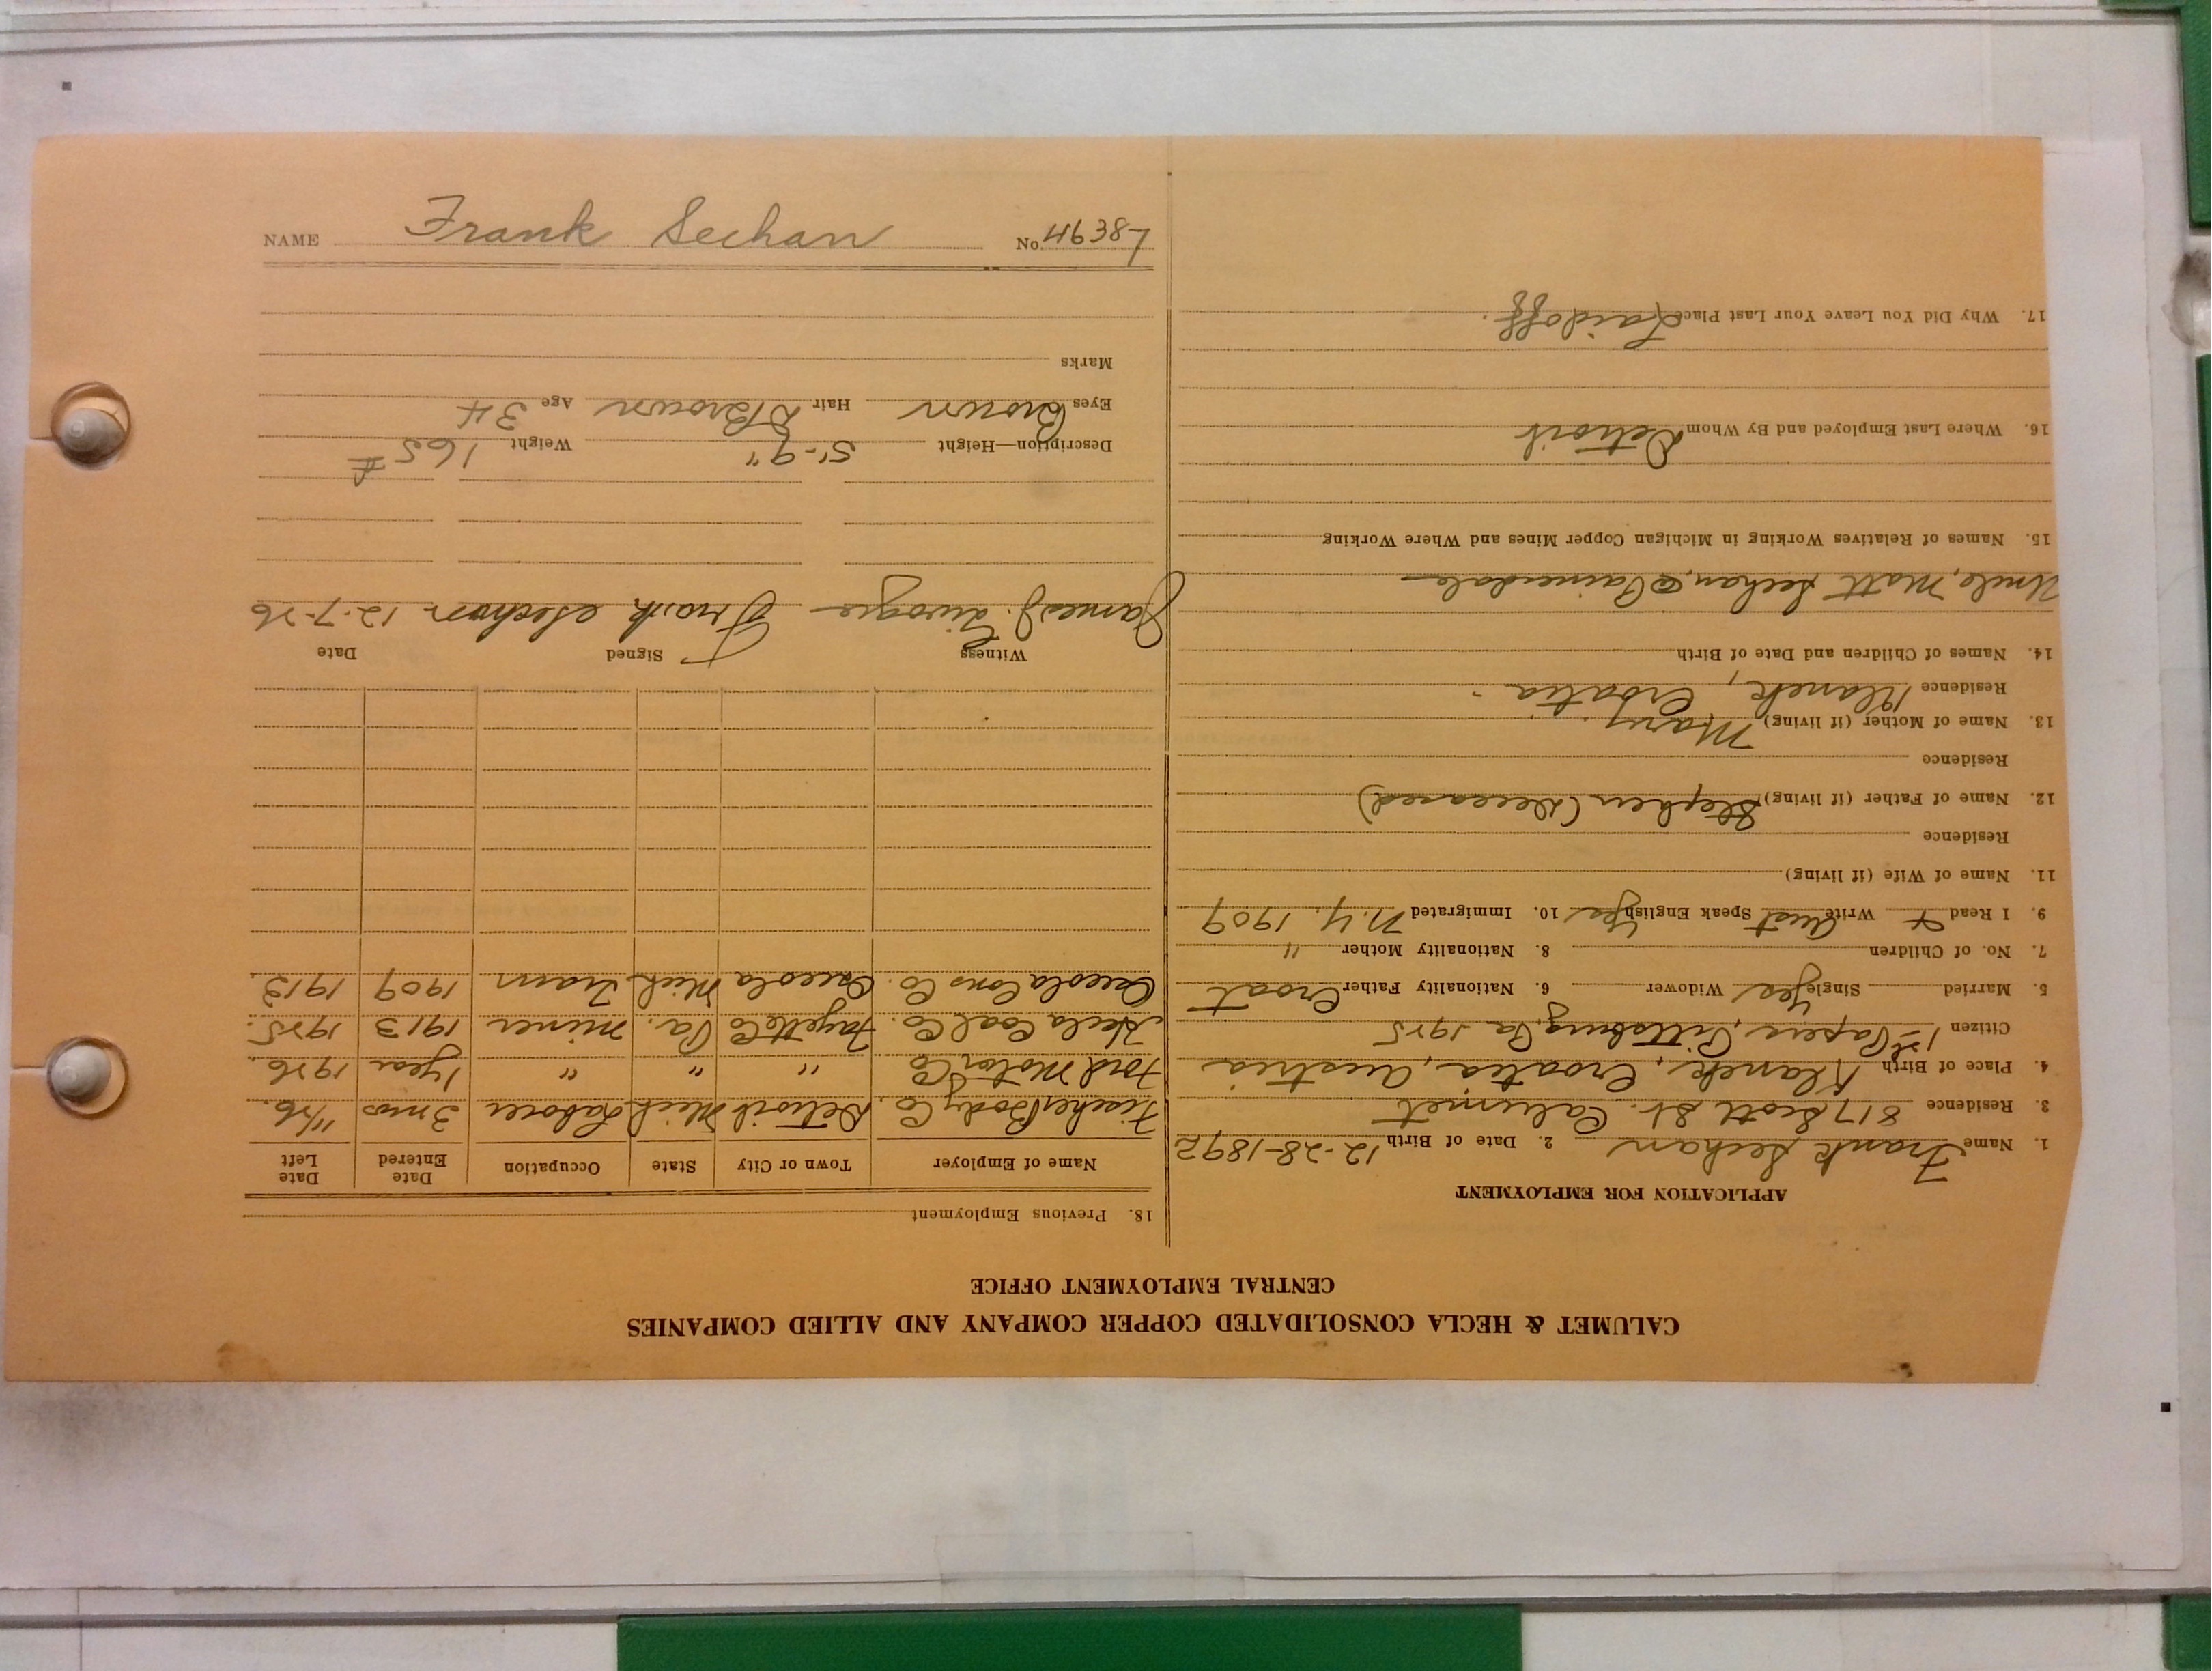 CALUMET & HECLA CONSOLIDATED COPPER COMPANY AND ALLIED COMPANIES
CENTRAL EMPLOYMENT OFFICE
APPLICATION FOR EMPLOYMENT
1. Name Frank Sechan 2. Date of Birth 12-28-1892
3. Residence 817 Scott St. Calumet
4. Place of Birth Klanek, Croatia, Austria
Citizen 1st Papers, Pittsburg, Pa 1925
5. Married Single Yes Widower 6. Nationality Father Croat
7. No. of Children 8. Nationality Mother "
9. I Read & Write Aust Speak English Yes 10. Immigrated N.Y. 1909
11. Name of Wife (if living)
Residence
12. Name of Father (if living) Stephen (Deceased)
Residence
13. Name of Mother (if living) Mary
Residence Klanek, Croatia.
14. Names of Children and Date of Birth
Uncle, Matt Sechan, @ Painesdale
15. Names of Relatives Working in Michigan Copper Mines and Where Working
16. Where Last Employed and By Whom Detroit
17. Why Did You Leave Your Last Place Laid off.
18. Previous Employment
Name of Employer Town or City State Occupation Date Entered Date Left
Fischer Body Co. Detroit Mich Laborer 3 mos 11/26.
Ford Motor Co " " " 1 year 1926.
Hecla Coal Co. Fayette Co Pa. miner 1913 1925.
Osceola Cons Co. Osceola Mich Tram 1909 1913.
Witness Signed Date
James J. Frank Sechan 12-7-26
Description—Height 5'-9" Weight 165 #
Eyes Brown Hair D Brown Age 34
Marks
NAME Frank Sechan No. 46387